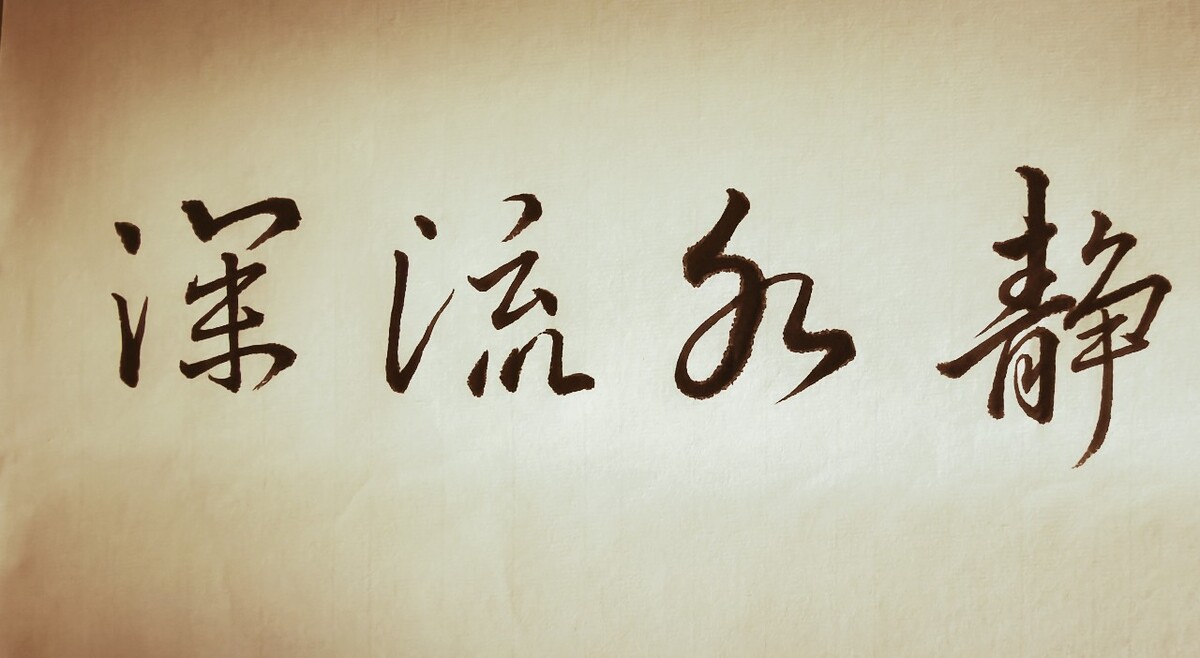 静水流深